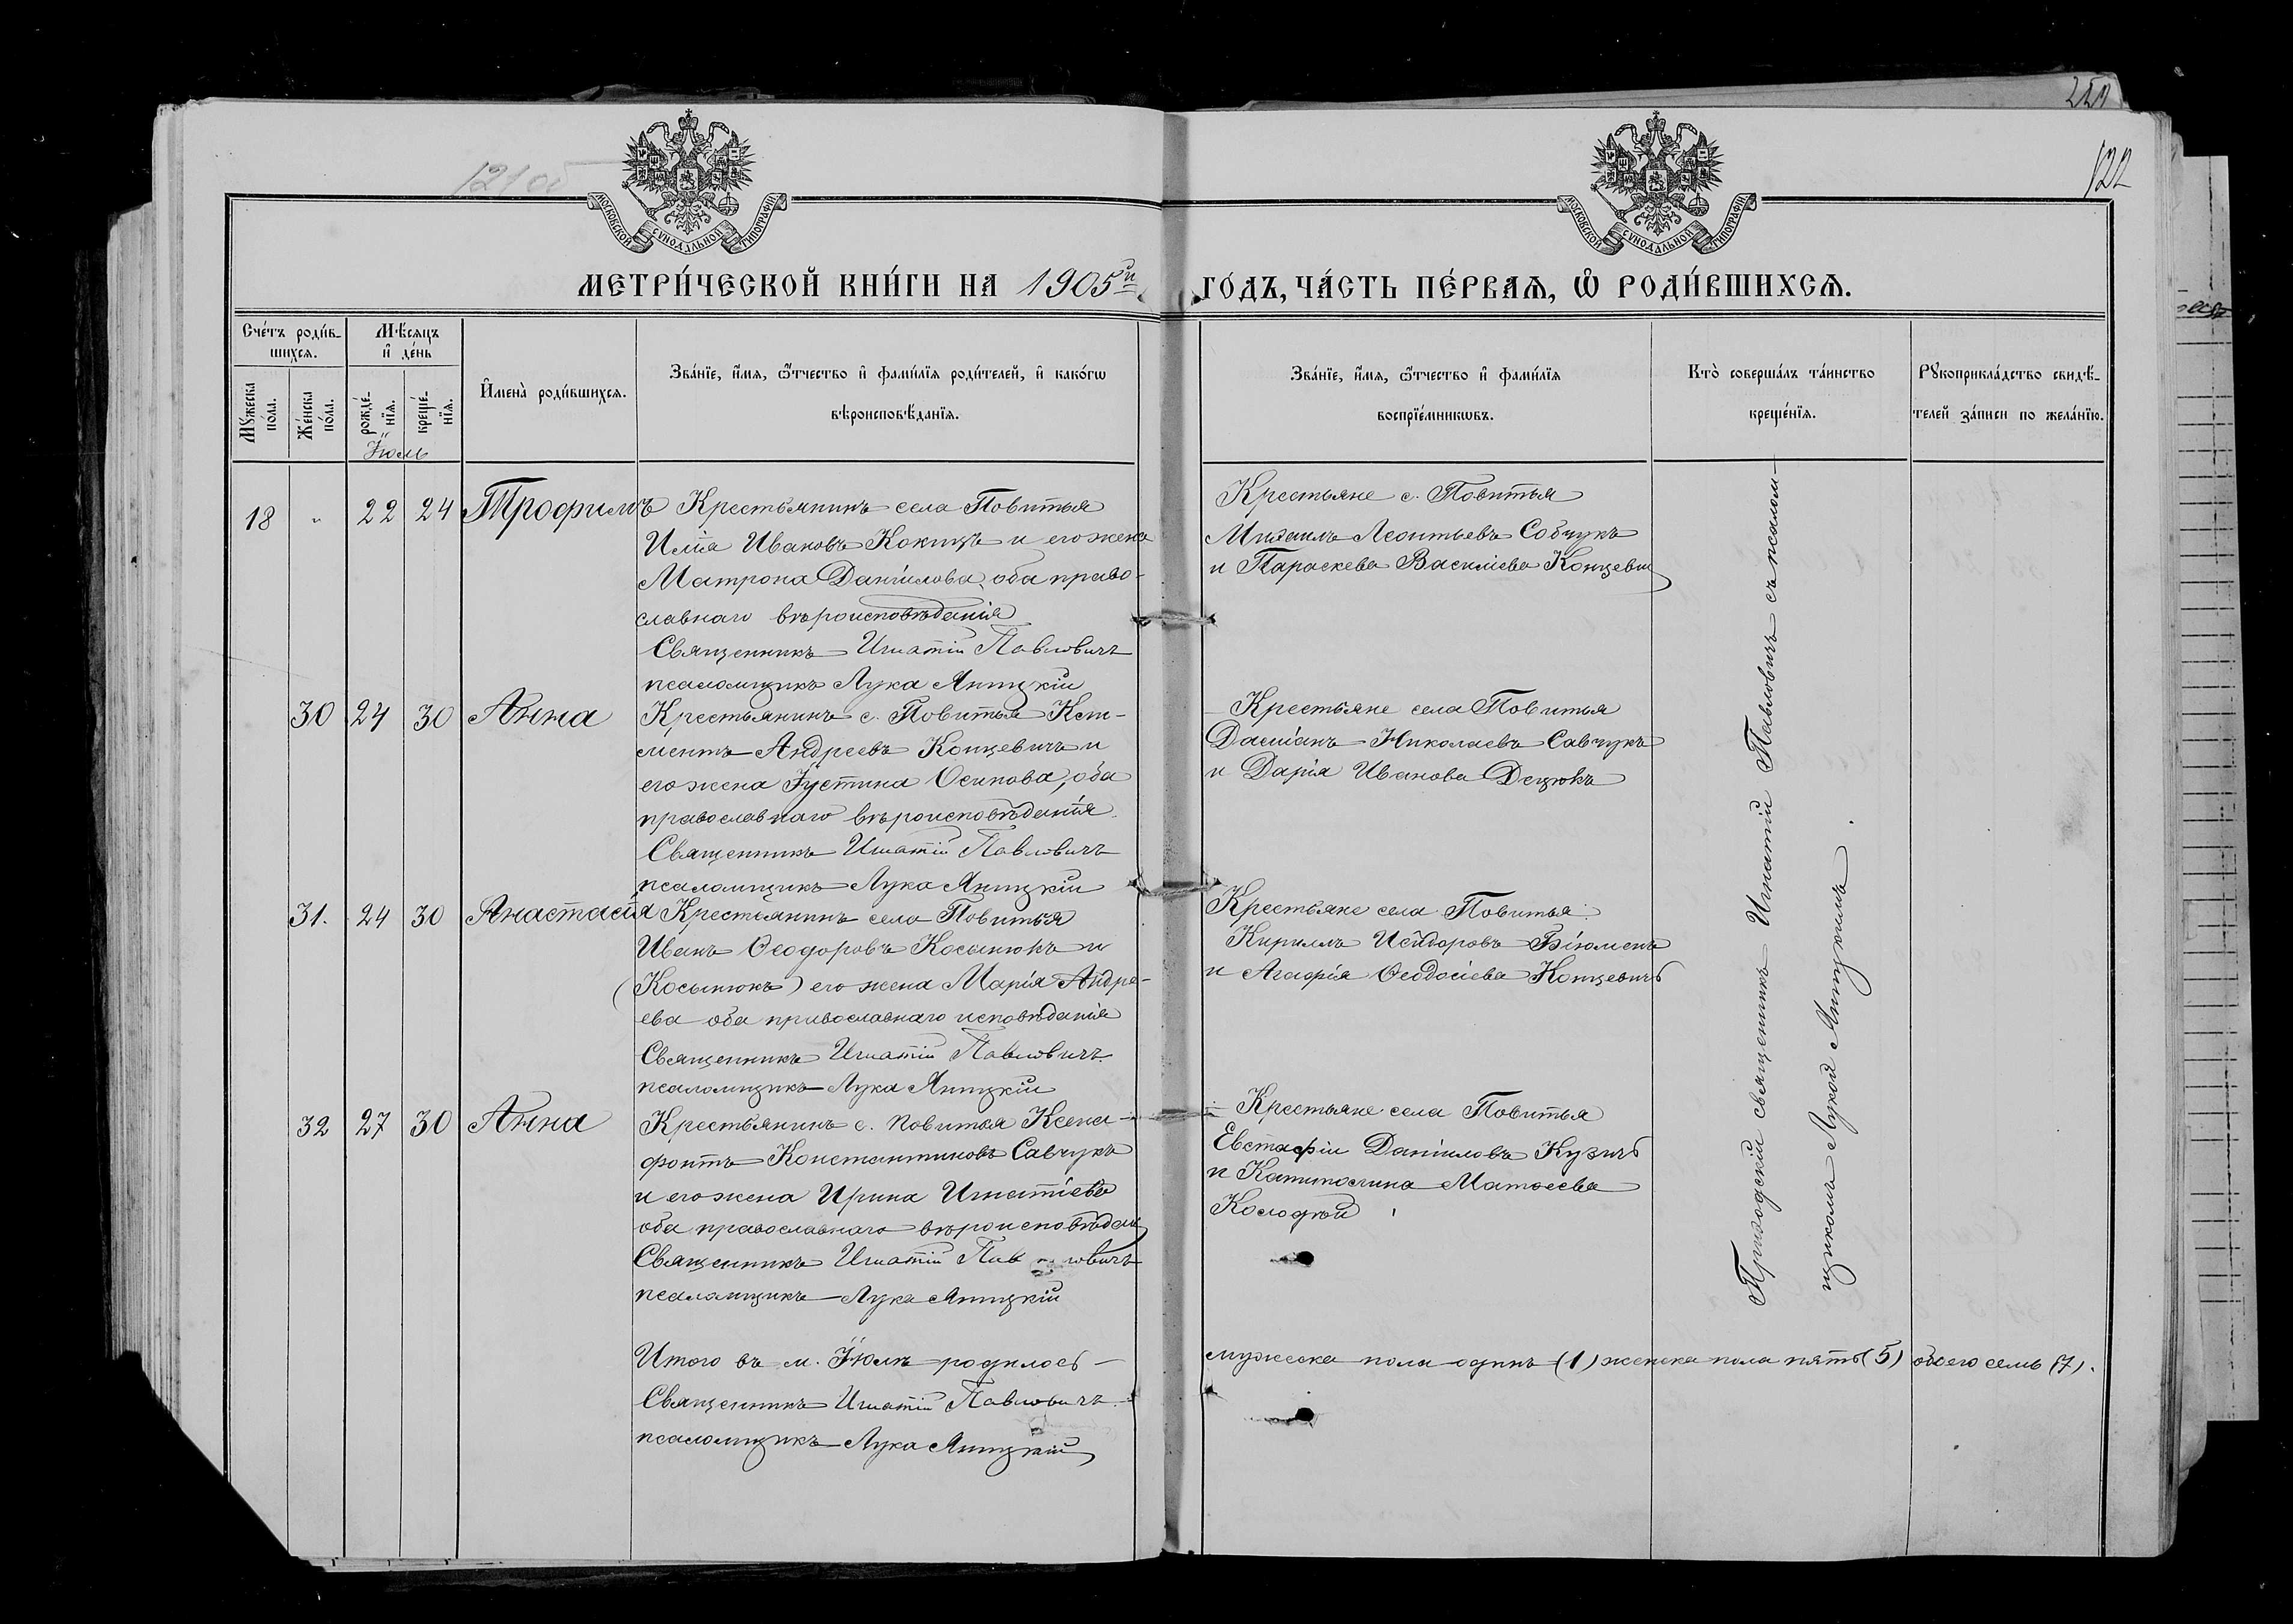 259
122
121 об
МОСКОВСКОЙ СѴНОДАЛЬНОЙ ТИПОГРАФІИ
МОСКОВСКОЙ СѴНОДАЛЬНОЙ ТИПОГРАФІИ
МЕТРИ́ЧЕСКОЙ КНИ́ГИ НА 1905й ГО́ДЪ, ЧА́СТЬ ПЕ́РВАѦ, Ѽ РОДИ́ВШИХСѦ.
Сче́тъ роди́в-
шихсѧ.
Мѣ́сѧцъ
и҆ де́нь
Мꙋ́жеска по́ла.
Же́нска по́ла.
рожде́-нїѧ.
креще́-нїѧ.
И҆мена̀ роди́вшихсѧ.
Зва́нїе, и҆́мѧ, ѻ҆́тчество и҆ фами́лїѧ роди́телей, и҆ како́гѡ
вѣроисповѣ́данїѧ.
Зва́нїе, и҆́мѧ, ѻ҆́тчество и҆ фами́лїѧ
воспрїе́мникѡвъ.
Кто̀ соверша́лъ та́инство
креще́нїѧ.
Рꙋкоприкла́дство свидѣ́-
телей за́писи по жела́нїю.
Іюль
18 " 22 24 Трофимъ
Крестьянинъ села Повитья
Илія Ивановъ Кокицъ и его жена
Матрона Даніилова, оба право-
славнаго вѣроисповѣданія
Священникъ Игнатій Павловичъ
псаломщикъ Лука Яницкій
Крестьяне с. Повитья
Михаилъ Леонтьевъ Собчукъ
и Параскева Василіева Концевич
30 24 30 Анна
Крестьянинъ с. Повитья Кли-
ментъ Андреевъ Концевичъ и
его жена Іустина Осипова, оба
православнаго вѣроисповѣданія
Священникъ Игнатій Павловичъ
псаломщикъ Лука Яницкій
Крестьяне села Повитья
Даміанъ Николаевъ Савчукъ
и Дарія Иванова Децюкъ
31. 24 30 Анастасія
Крестьянинъ села Повитья
Иванъ Ѳеодоровъ Косынюкъ и
(Косынюкъ) его жена Марія Андре-
ева оба православнаго исповѣданія
Священникъ Игнатій Павловичъ
псаломщикъ Лука Яницкій
Крестьяне села Повитья
Кириллъ Исидоровъ
и Агафія Ѳеодосіева Концевичъ
32 27 30 Анна
Крестьянинъ с. Повитья Ксено-
фонтъ Константиновъ Савчукъ
и его жена Ирина Игнатіева
оба православнаго вѣроисповѣдан
Священникъ Игнатій Павловичъ
псаломщикъ Лука Яницкій
Крестьяне села Повитья
Евстафій Даніиловъ Кузичъ
и Капитолина Матѳеева
Колодѣй
Приходскій священникъ Игнатій Павловичъ съ псалом-
щикомъ Лукой Яницкимъ.
Итого въ м. Іюлѣ родилось - мужеска пола одинъ (1) женска пола пять (5) обоего семь (7).
Священникъ Игнатій Павловичъ
псаломщикъ Лука Яницкій